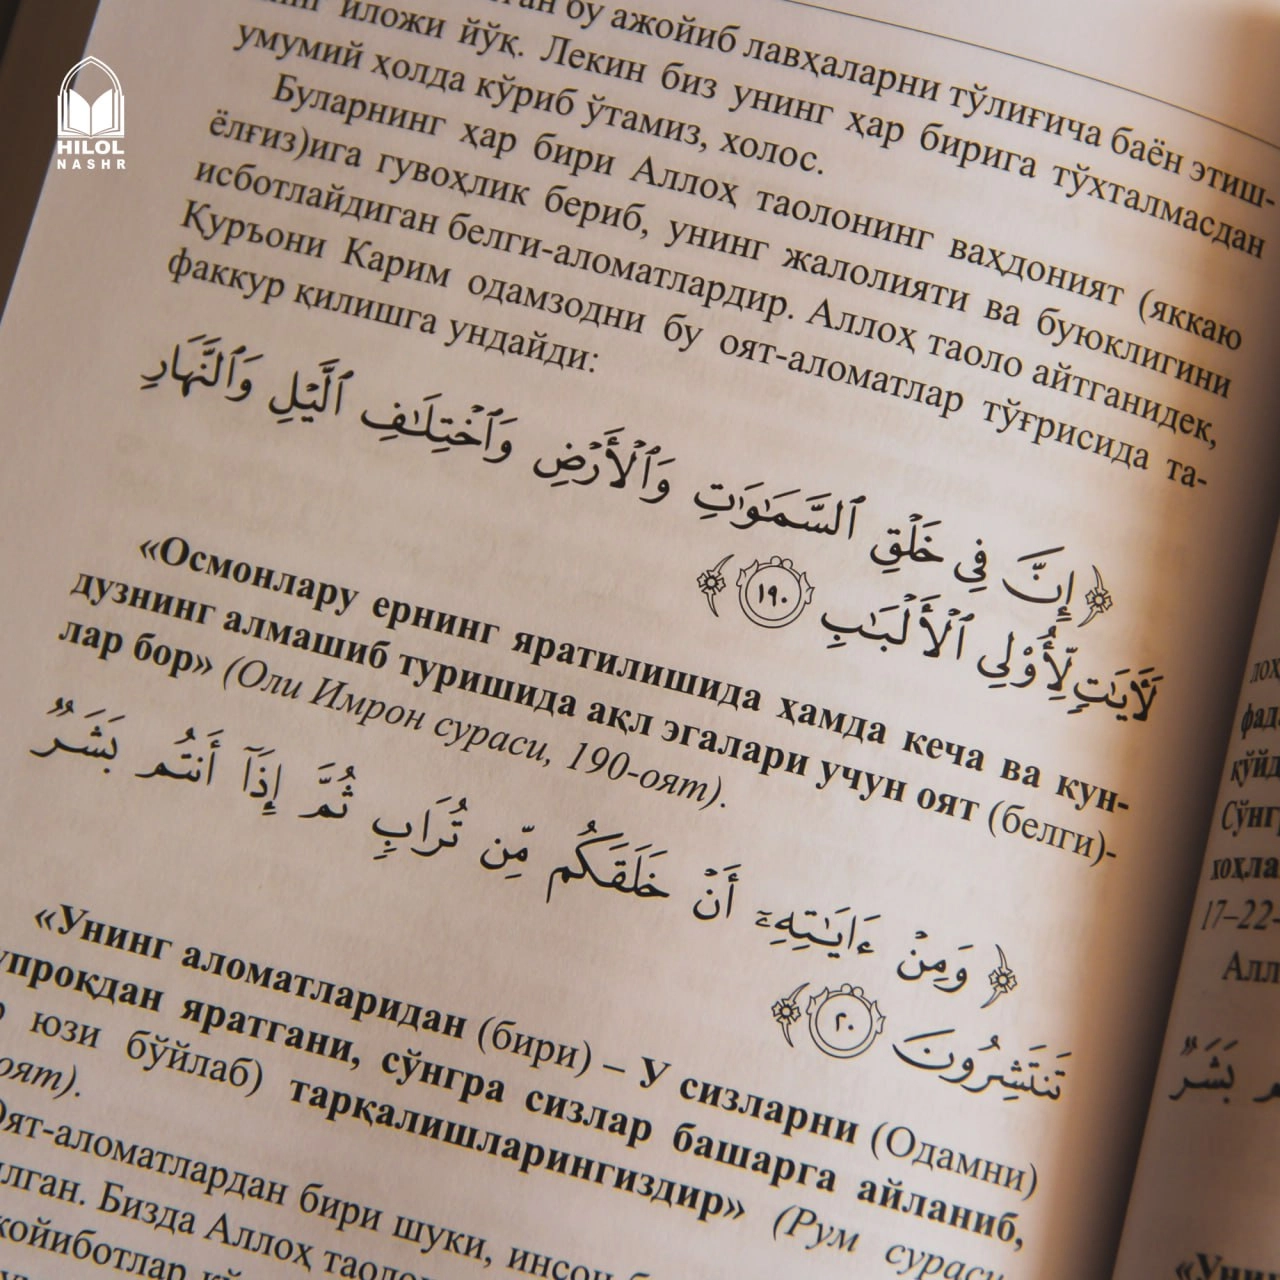 HILOL
NASHR
бу ажойиб лавҳаларни тўлиғича баён этиш-
иложи йўқ. Лекин биз унинг ҳар бирига тўхталмасдан
умумий ҳолда кўриб ўтамиз, холос.
Буларнинг ҳар бири Аллоҳ таолонинг ваҳдоният (яккаю
ёлғиз)ига гувоҳлик бериб, унинг жалолияти ва буюклигини
исботлайдиган белги-аломатлардир. Аллоҳ таоло айтганидек,
Қуръони Карим одамзодни бу оят-аломатлар тўғрисида та-
факкур қилишга ундайди:
﴿ إِنَّ فِي خَلْقِ ٱلسَّمَـٰوَٰتِ وَٱلْأَرْضِ وَٱخْتِلَـٰفِ ٱلَّيْلِ وَٱلنَّهَارِ
لَـَٔايَـٰتٍ لِّأُوْلِي ٱلْأَلْبَـٰبِ ١٩٠ ﴾
«Осмонлару ернинг яратилишида ҳамда кеча ва кун-
дузнинг алмашиб туришида ақл эгалари учун оят (белги)-
лар бор» (Оли Имрон сураси, 190-оят).
﴿ وَمِنْ ءَايَـٰتِهِۦٓ أَنْ خَلَقَكُم مِّن تُرَابٍ ثُمَّ إِذَآ أَنتُم بَشَرٌ
تَنتَشِرُونَ ٢٠ ﴾
«Унинг аломатларидан (бири) – У сизларни (Одамни)
яратгани, сўнгра сизлар башарга айланиб,
юзи бўйлаб) тарқалишларингиздир» (Рум сураси
оят).
Оят-аломатлардан бири шуки, инсон
Бизда Аллоҳ
фад
қўйд
Сўнг
хоҳла
17–22-
Алл
بَشَرٌ
«Унин